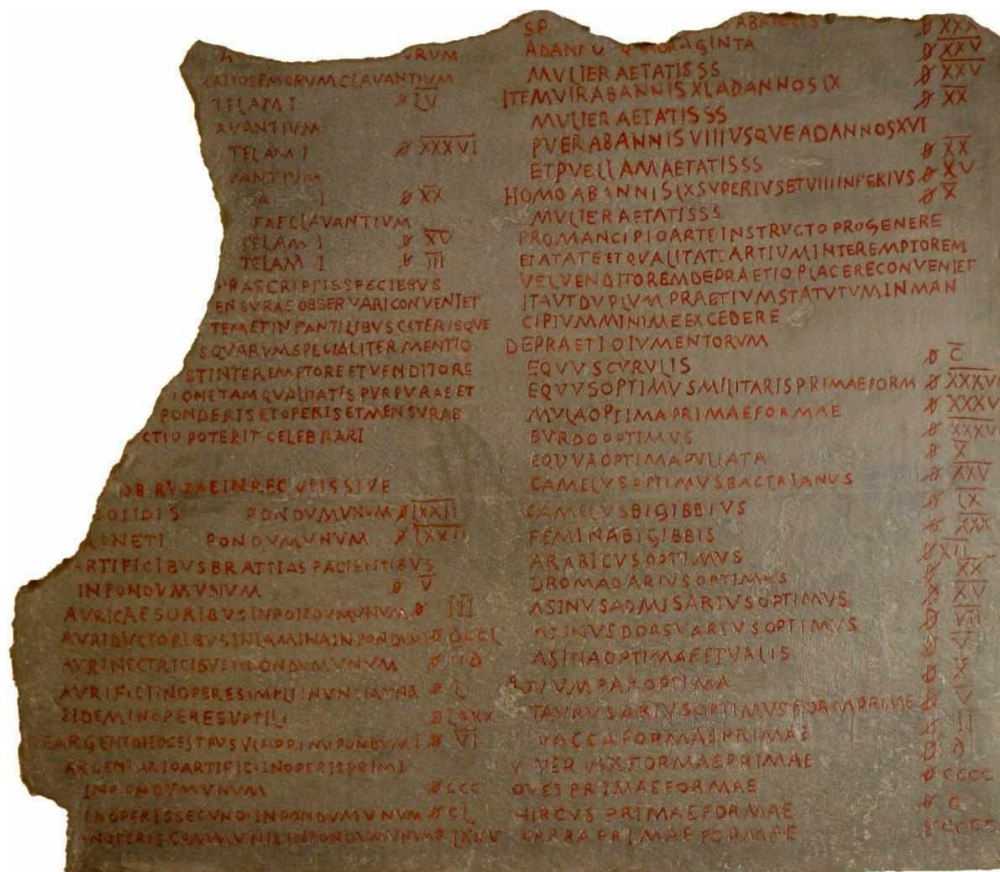 A URUM
CLAVANTIUM
TELAM I 𐆖 LV
AVANTIUM
TELAM I 𐆖 XXXVI
VANTIUM
A I 𐆖 XX
FAECLAVANTIVM
TELAM I 𐆖 XV
TELAM I 𐆖 III
PRASCRIPTISSPECIEBVS
ENSVRASOBSERVARICONVENIET
TEMETINFANTILIBVSCETERISQVE
SQVARVMSPECIALITERMENTIO
STINTEREMPTOREETVENDITORE
IONETAMQVALITATISPVRPVRAEET
PONDERISETOPERISETMENSVRAE
CTIOPOTERITCELEBRARI
OBRVZAEINREGVLISSIVE
SOLIDIS PONDVMUNUM 𐆖 LXXII
INETI PONDVMUNUM 𐆖 LXXII
ARTIFICIBVSBRATTIASFACIENTIBVS
INPONDVMVNVM 𐆖 V
AVRICAESORIBVSINPONDVMUNUM 𐆖 III
AVRIDVCTORIBVSINLAMINAINPONDVM
AVRINECTRICIBVSINPONDVMVNVM
AVRIFICIINOPERESIMPLIINVNCIAM 𐆖 L
EIDEMINOPERESVPTILI 𐆖 LXXX
VI
ARGENTARIOARTIFICIINOPERISPRIMI
INPONDVMVNVM 𐆖 CCC
INOPERISSECVNDIINPONDVMVNVM 𐆖 CL
INOPERISCOMMVNISINPONDVMVNVM
SP ABANNIS 𐆖 XXX
ADANNU 𐆖 XXV
MVLIERAETATISSS 𐆖 XXV
ITEMVIRABANNISXLADANNOSLX 𐆖 XX
MVLIERAETATISSS
PVERABANNISVIIIVSQVEADANNOSXVI
ETPVELLAMAETATISSS 𐆖 XX
HOMOABANNISLXSVPERIVSETVIIIINFERIVS 𐆖 XV
MVLIERAETATISSS 𐆖 X
PROMANCIPIOARTEINSTRVCTOPROGENERE
ETATATEETQVALITATEARTIVMINTEREMPTOREM
VELVENDITOREMDEPRAETIOPLACERECONVENIET
ITAVTDVPLVMPRAETIVMSTATVTVMINMAN
CIPIVMMINIMEEXCEDERE
DEPRAETIOIVMENTORVM
EQVVSCVRVLIS 𐆖 C
EQVVSOPTIMVSMILITARISPRIMAEFORM 𐆖 XXXVI
MVLAOPTIMAPRIMAEFORMAE 𐆖 XXXVI
BVRDOOPTIMVS 𐆖 XXXVI
EQVVAOPTIMAPVLLATA 𐆖 X
CAMELVSOPTIMVSBACTRIANVS 𐆖 XXV
CAMELVSBIGIBBIVS 𐆖 LX
FEMINABIGIBBIS 𐆖 XXX
ARABICVSOPTIMVS 𐆖 XII
DROMADARIVSOPTIMVS 𐆖 XX
ASINVSADMISARIVSOPTIMVS 𐆖 XV
ASINVSDORSVARIVSOPTIMVS 𐆖 VII
ASINAOPTIMAFETVALIS 𐆖 V
BOVVMPAROPTIMA 𐆖 X
TAVRVSARIVSOPTIMVSFORMPRIME 𐆖 V
VACCAFORMAEPRIMAE 𐆖 II
VERVIXFORMAEPRIMAE 𐆖 D
OVESPRIMAEFORMAE 𐆖 CCCC
HIRCVSPRIMAEFORMAE 𐆖 D
CAPRAPRIMAEFORMAE